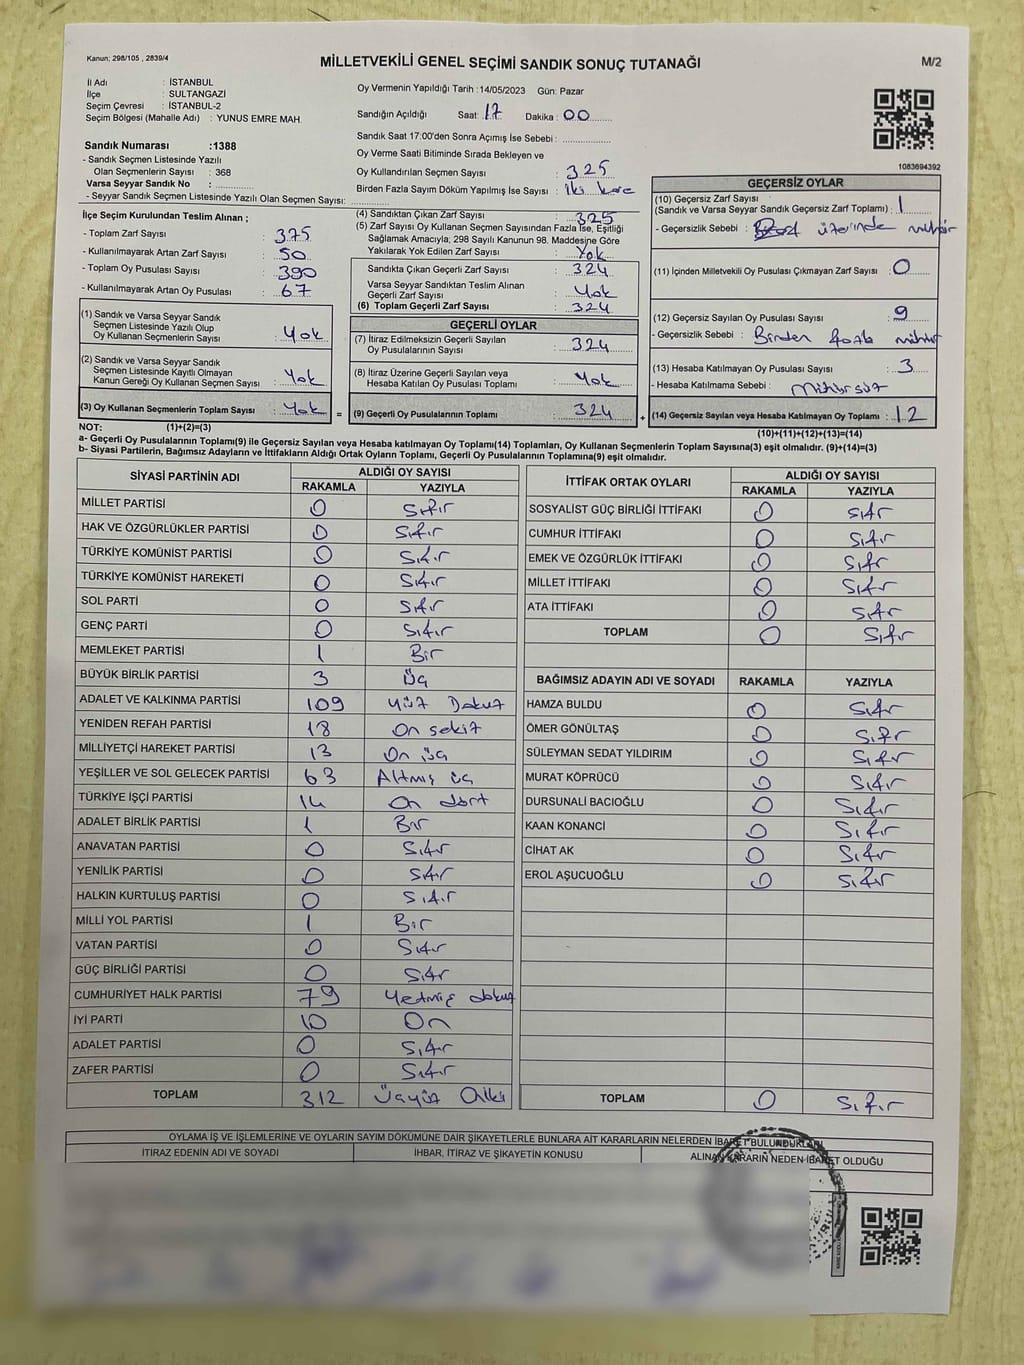 Kanun: 298/105 , 2839/4
MİLLETVEKİLİ GENEL SEÇİMİ SANDIK SONUÇ TUTANAĞI
M/2
İl Adı : İSTANBUL
İlçe : SULTANGAZİ
Seçim Çevresi : İSTANBUL-2
Seçim Bölgesi (Mahalle Adı) : YUNUS EMRE MAH.
Sandık Numarası :1388
- Sandık Seçmen Listesinde Yazılı
Olan Seçmenlerin Sayısı : 368
Varsa Seyyar Sandık No :
- Seyyar Sandık Seçmen Listesinde Yazılı Olan Seçmen Sayısı:
Oy Vermenin Yapıldığı Tarih :14/05/2023 Gün: Pazar
Sandığın Açıldığı Saat: 17 Dakika : 00
Sandık Saat 17:00'den Sonra Açımış İse Sebebi :
Oy Verme Saati Bitiminde Sırada Bekleyen ve
Oy Kullandırılan Seçmen Sayısı : 325
Birden Fazla Sayım Döküm Yapılmış İse Sayısı : iki kere
1083694392
İlçe Seçim Kurulundan Teslim Alınan ;
- Toplam Zarf Sayısı : 375
- Kullanılmayarak Artan Zarf Sayısı : 50
- Toplam Oy Pusulası Sayısı : 390
- Kullanılmayarak Artan Oy Pusulası : 67
(1) Sandık ve Varsa Seyyar Sandık
Seçmen Listesinde Yazılı Olup
Oy Kullanan Seçmenlerin Sayısı : Yok
(2) Sandık ve Varsa Seyyar Sandık
Seçmen Listesinde Kayıtlı Olmayan
Kanun Gereği Oy Kullanan Seçmen Sayısı : Yok
(3) Oy Kullanan Seçmenlerin Toplam Sayısı : Yok =
(4) Sandıktan Çıkan Zarf Sayısı : 325
(5) Zarf Sayısı Oy Kullanan Seçmen Sayısından Fazla İse, Eşitliği
Sağlamak Amacıyla; 298 Sayılı Kanunun 98. Maddesine Göre
Yakılarak Yok Edilen Zarf Sayısı : Yok
Sandıkta Çıkan Geçerli Zarf Sayısı : 324
Varsa Seyyar Sandıktan Teslim Alınan
Geçerli Zarf Sayısı : Yok
(6) Toplam Geçerli Zarf Sayısı : 324
GEÇERLİ OYLAR
(7) İtiraz Edilmeksizin Geçerli Sayılan
Oy Pusulalarının Sayısı : 324
(8) İtiraz Üzerine Geçerli Sayılan veya
Hesaba Katılan Oy Pusulası Toplamı : Yok
(9) Geçerli Oy Pusulalarının Toplamı : 324 +
GEÇERSİZ OYLAR
(10) Geçersiz Zarf Sayısı
(Sandık ve Varsa Seyyar Sandık Geçersiz Zarf Toplamı) : 1
- Geçersizlik Sebebi : üzerinde mühür
(11) İçinden Milletvekili Oy Pusulası Çıkmayan Zarf Sayısı : 0
(12) Geçersiz Sayılan Oy Pusulası Sayısı : 9
- Geçersizlik Sebebi : Birden fazla mühür
(13) Hesaba Katılmayan Oy Pusulası Sayısı : 3
- Hesaba Katılmama Sebebi : Mühürsüz
(14) Geçersiz Sayılan veya Hesaba Katılmayan Oy Toplamı : 12
NOT: (1)+(2)=(3)
(10)+(11)+(12)+(13)=(14)
a- Geçerli Oy Pusulalarının Toplamı(9) ile Geçersiz Sayılan veya Hesaba katılmayan Oy Toplamı(14) Toplamları, Oy Kullanan Seçmenlerin Toplam Sayısına(3) eşit olmalıdır. (9)+(14)=(3)
b- Siyasi Partilerin, Bağımsız Adayların ve İttifakların Aldığı Ortak Oyların Toplamı, Geçerli Oy Pusulalarının Toplamına(9) eşit olmalıdır.
SİYASİ PARTİNİN ADI ALDIĞI OY SAYISI
RAKAMLA YAZIYLA
MİLLET PARTİSİ 0 Sıfır
HAK VE ÖZGÜRLÜKLER PARTİSİ 0 Sıfır
TÜRKİYE KOMÜNİST PARTİSİ 0 Sıfır
TÜRKİYE KOMÜNİST HAREKETİ 0 Sıfır
SOL PARTİ 0 Sıfır
GENÇ PARTİ 0 Sıfır
MEMLEKET PARTİSİ 1 Bir
BÜYÜK BİRLİK PARTİSİ 3 Üç
ADALET VE KALKINMA PARTİSİ 109 Yüz Dokuz
YENİDEN REFAH PARTİSİ 18 On sekiz
MİLLİYETÇİ HAREKET PARTİSİ 13 On üç
YEŞİLLER VE SOL GELECEK PARTİSİ 63 Altmış üç
TÜRKİYE İŞÇİ PARTİSİ 14 On dört
ADALET BİRLİK PARTİSİ 1 Bir
ANAVATAN PARTİSİ 0 Sıfır
YENİLİK PARTİSİ 0 Sıfır
HALKIN KURTULUŞ PARTİSİ 0 Sıfır
MİLLİ YOL PARTİSİ 1 Bir
VATAN PARTİSİ 0 Sıfır
GÜÇ BİRLİĞİ PARTİSİ 0 Sıfır
CUMHURİYET HALK PARTİSİ 79 Yetmiş dokuz
İYİ PARTİ 10 On
ADALET PARTİSİ 0 Sıfır
ZAFER PARTİSİ 0 Sıfır
TOPLAM 312 Üçyüz Oniki
İTTİFAK ORTAK OYLARI ALDIĞI OY SAYISI
RAKAMLA YAZIYLA
SOSYALİST GÜÇ BİRLİĞİ İTTİFAKI 0 Sıfır
CUMHUR İTTİFAKI 0 Sıfır
EMEK VE ÖZGÜRLÜK İTTİFAKI 0 Sıfır
MİLLET İTTİFAKI 0 Sıfır
ATA İTTİFAKI 0 Sıfır
TOPLAM 0 Sıfır
BAĞIMSIZ ADAYIN ADI VE SOYADI RAKAMLA YAZIYLA
HAMZA BULDU 0 Sıfır
ÖMER GÖNÜLTAŞ 0 Sıfır
SÜLEYMAN SEDAT YILDIRIM 0 Sıfır
MURAT KÖPRÜCÜ 0 Sıfır
DURSUNALİ BACIOĞLU 0 Sıfır
KAAN KONANCİ 0 Sıfır
CİHAT AK 0 Sıfır
EROL AŞUCUOĞLU 0 Sıfır
TOPLAM 0 Sıfır
OYLAMA İŞ VE İŞLEMLERİNE VE OYLARIN SAYIM DÖKÜMÜNE DAİR ŞİKAYETLERLE BUNLARA AİT KARARLARIN NELERDEN İBARET BULUNDUKLARI
İTİRAZ EDENİN ADI VE SOYADI İHBAR, İTİRAZ VE ŞİKAYETİN KONUSU ALINAN KARARIN NEDEN İBARET OLDUĞU